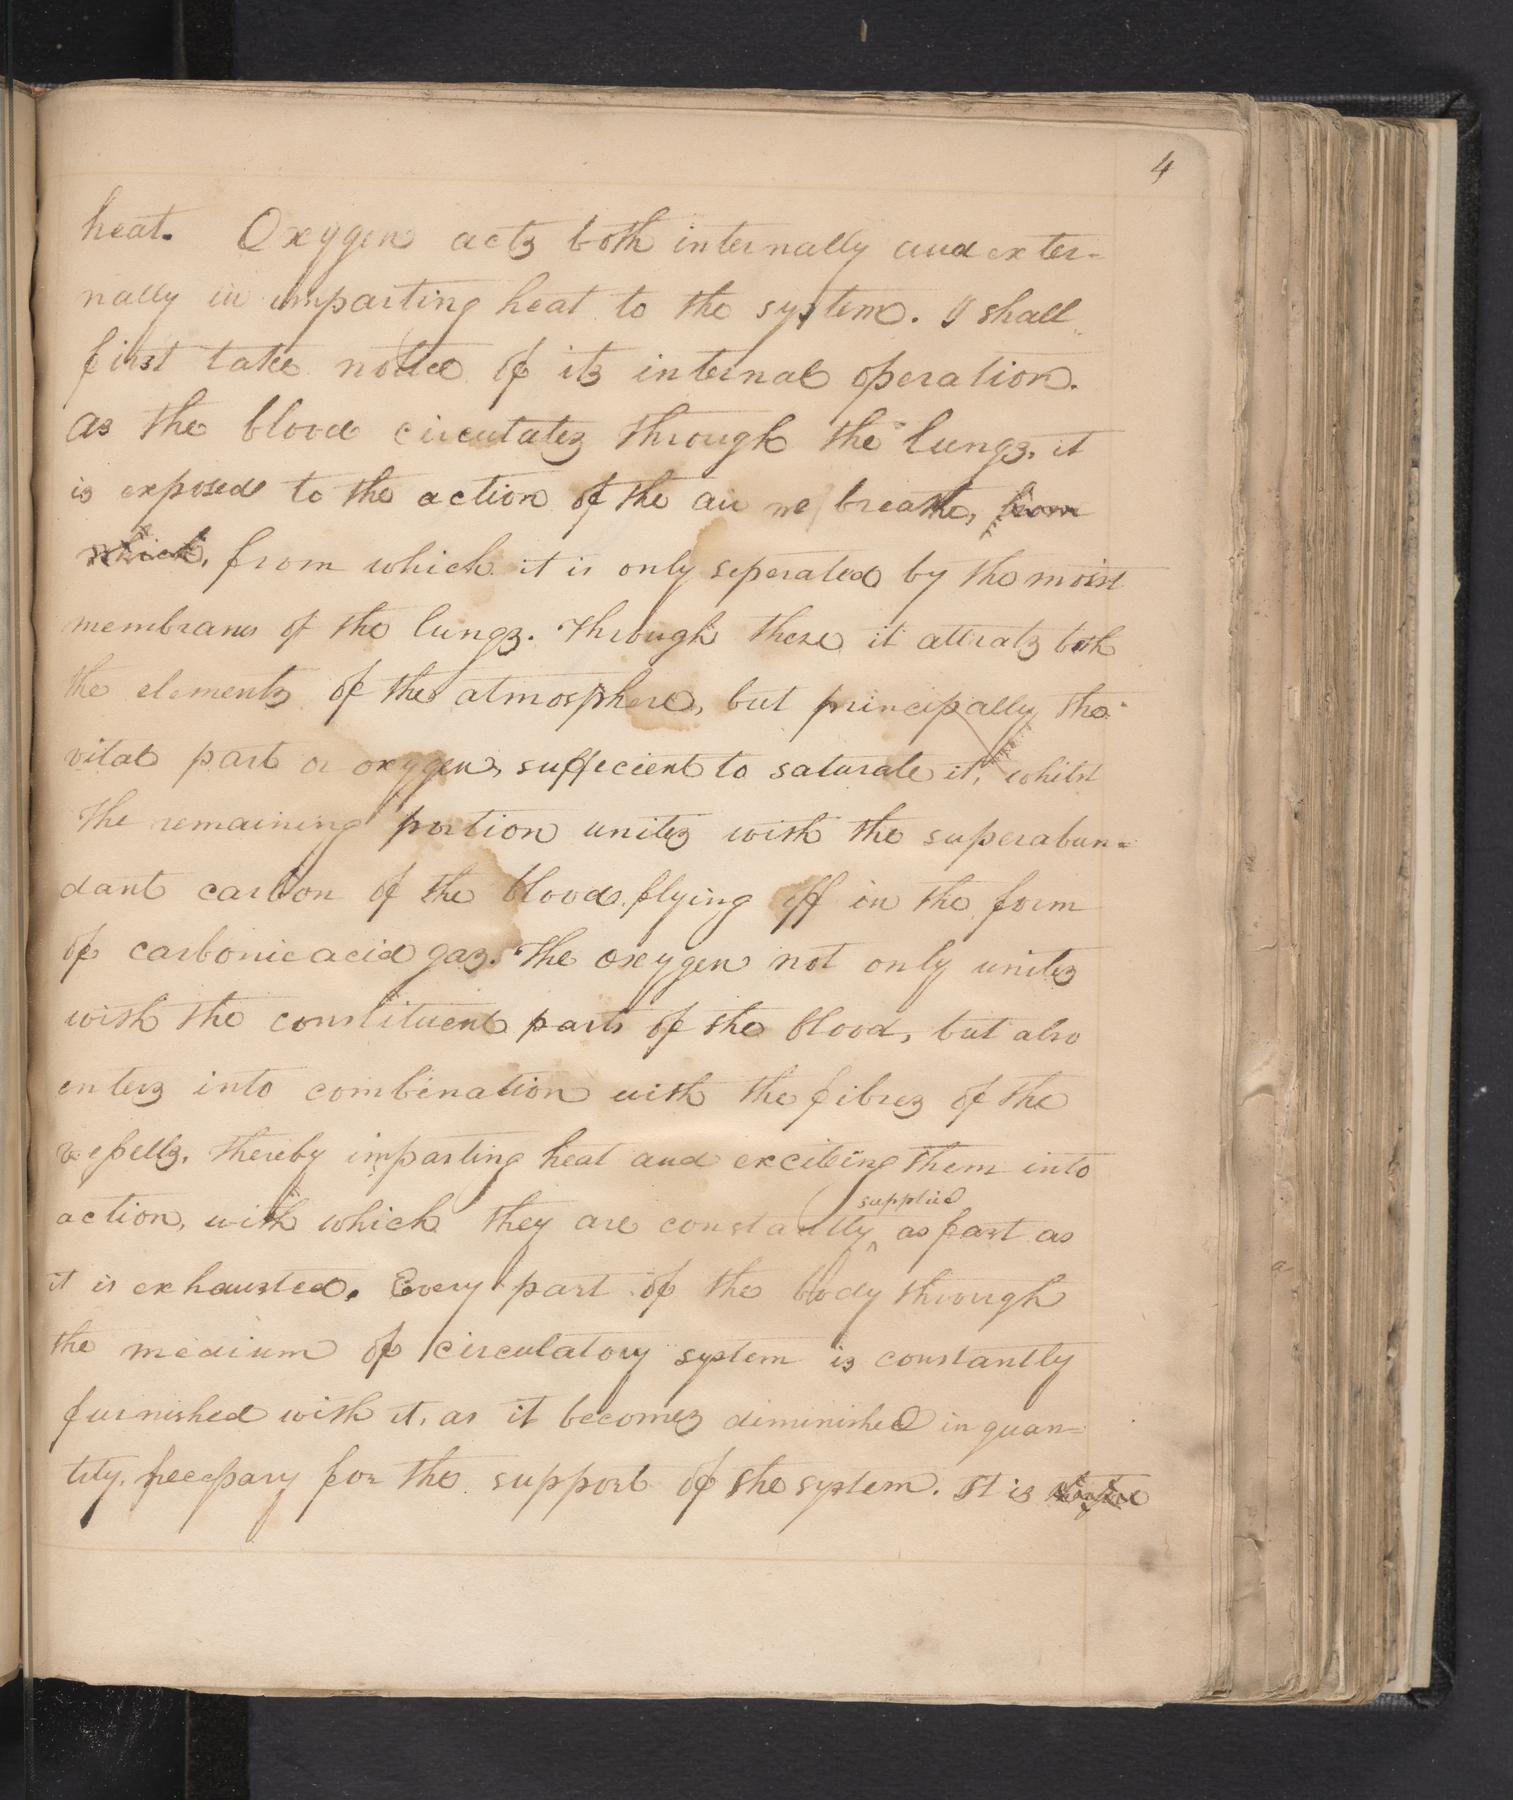 4
heat. Oxygen acts both internally and exter-
nally in imparting heat to the system. I shall
first take notice of its internal operation.
As the blood circulates through the lungs, it
is exposed to the action of the air we breathe, from
which, from which it is only seperated by the moist
membranes of the lungs. Through these it attrats both
the elements of the atmosphere, but principally the
vital part or oxygen, suffecient to saturate it, whilst
the remaining portion unites with the superabun-
dant carbon of the blood flying off in the form
of carbonic acid gas. The oxygen not only unites
with the constituent parts of the blood, but also
enters into combination with the fibres of the
vessells, thereby imparting heat and exciteing them into
supplied
action, with which they are constantly ^ as fast as
it is exhausted. Every part of the body through
the medium of circulatory system is constantly
furnished with it, as it becomes diminished in quan-
tity, necessary for the support of the system. It is